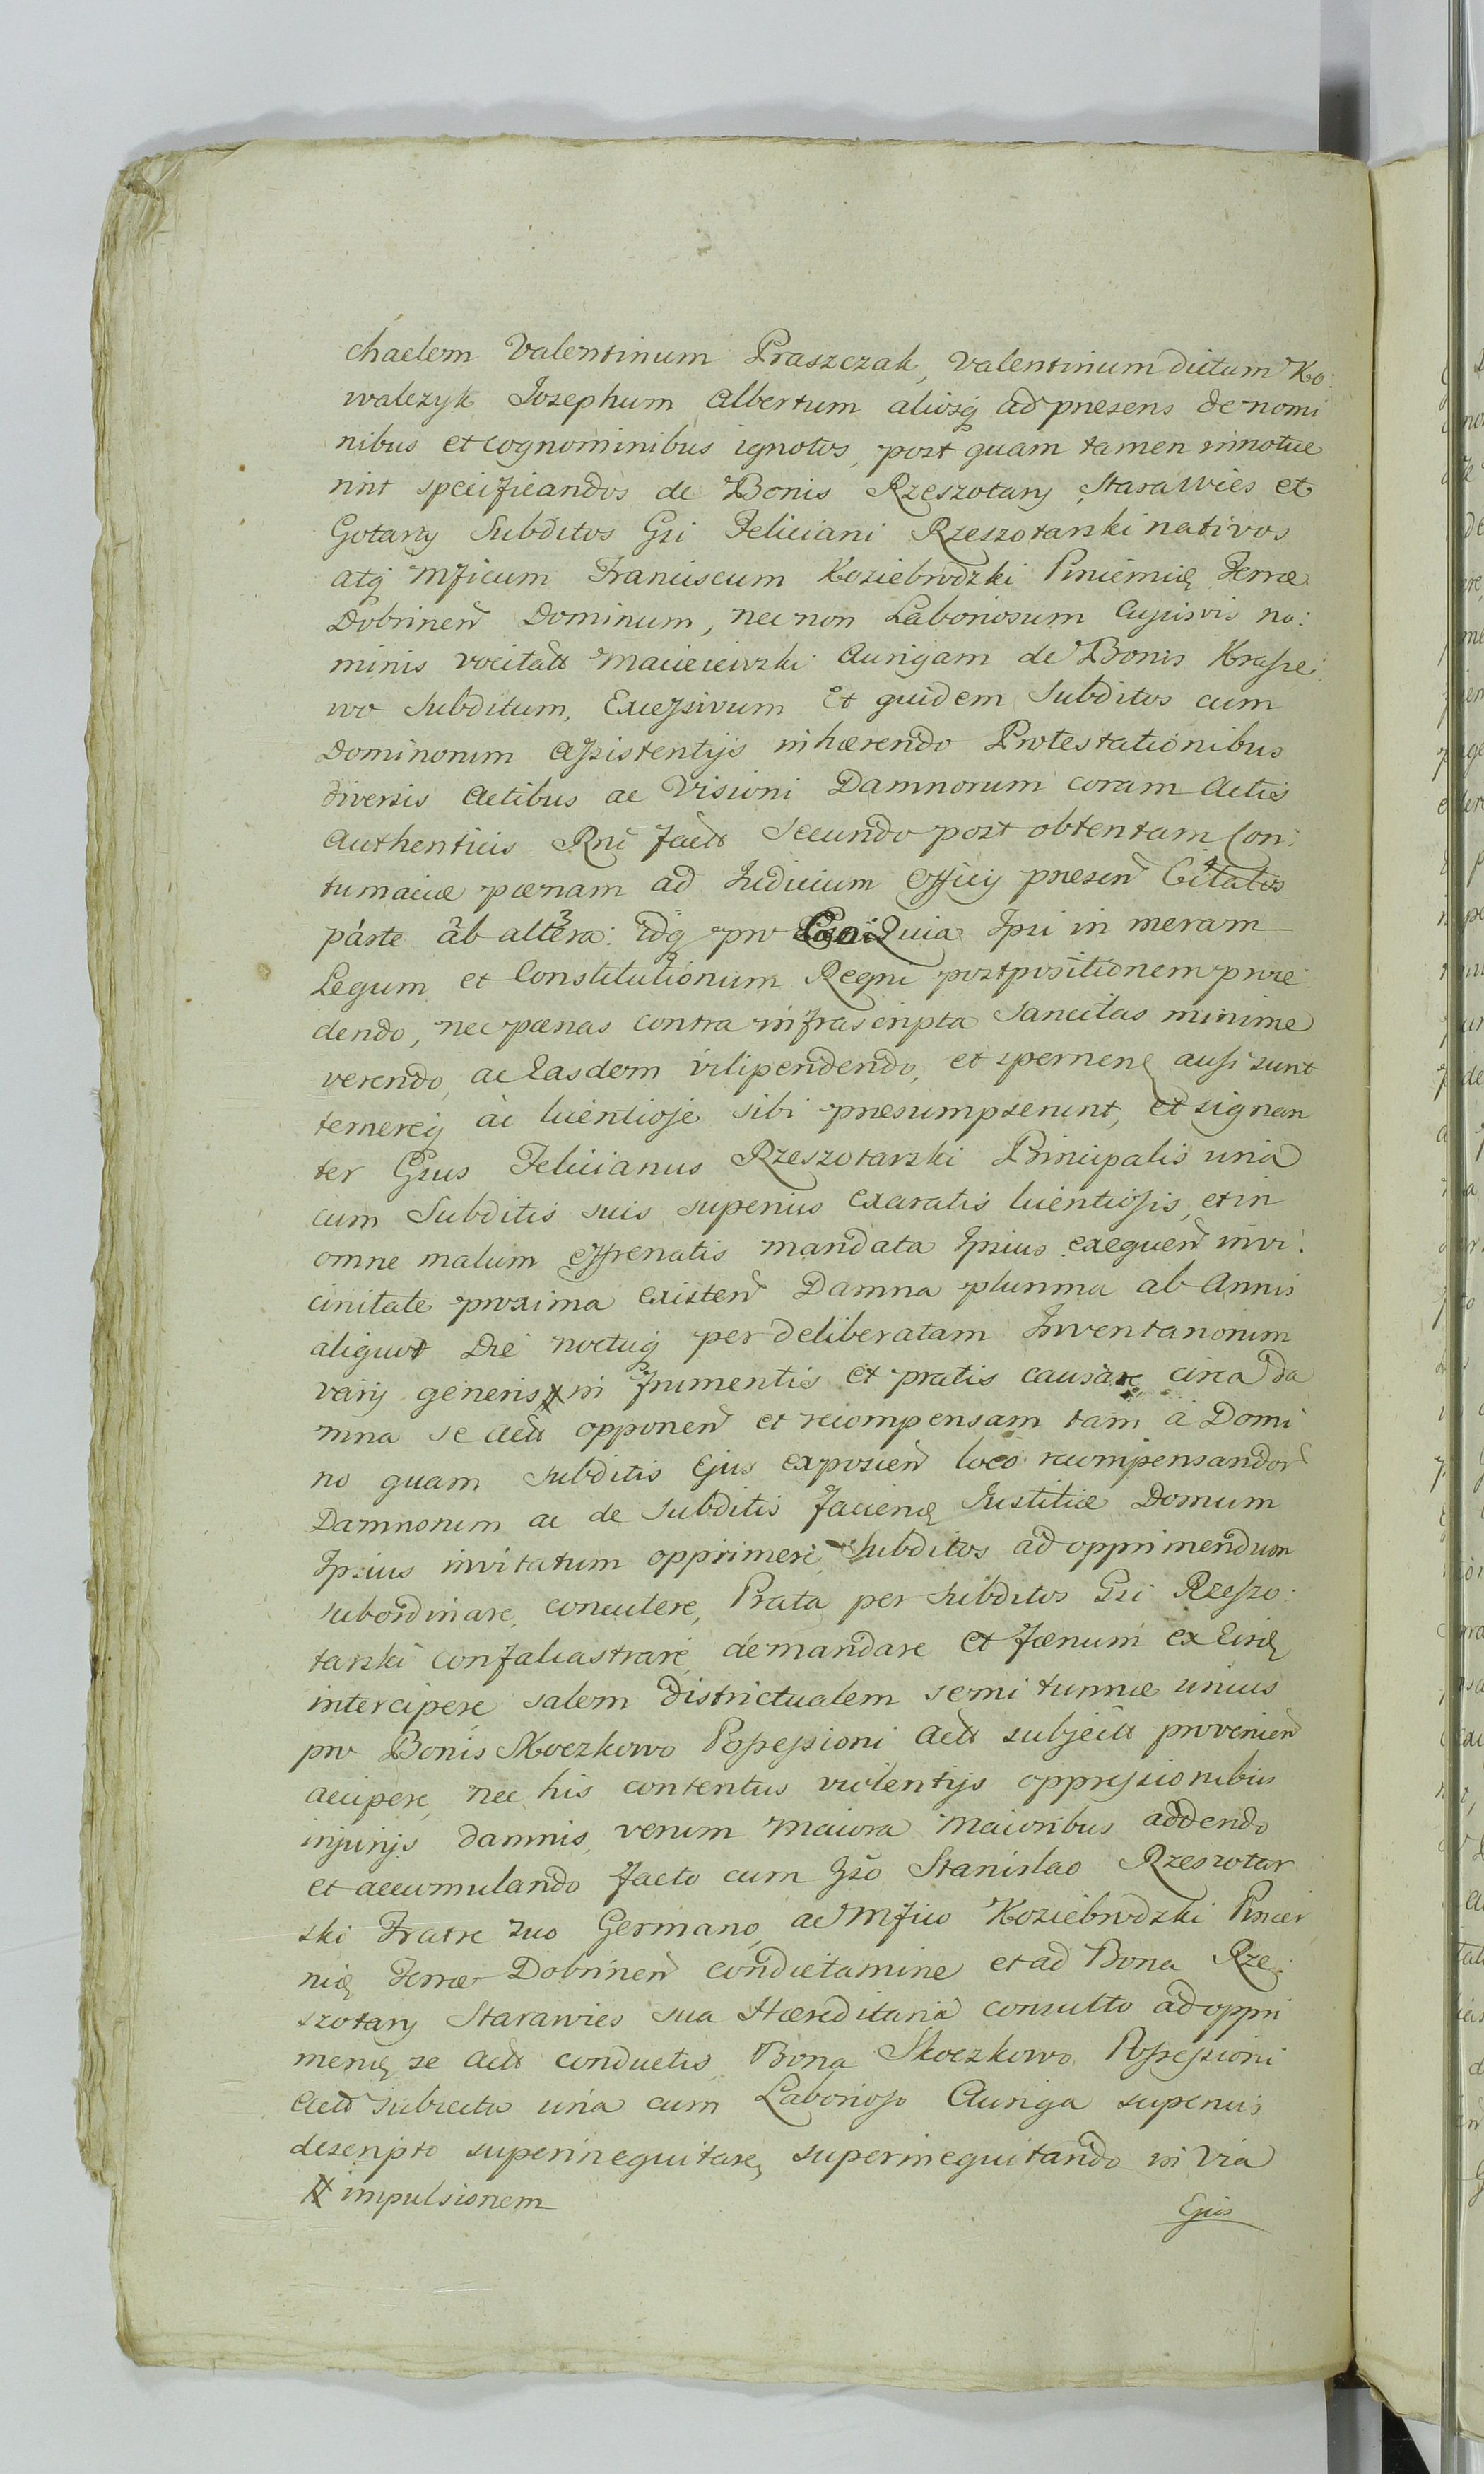 chaelem Valentinum Praszczak, Valentinum dictum Ko:
walczyk Josephum Albertum aliosq; ad præsens de nomi
nibus et cognominibus ignotos, post quam tamen innotue
rint specificandos de Bonis Rzeszotary Starawies et
Gotarty Subditos Gsi Feliciani Rzeszotarski nativos
atq; Mficum Franciscum Koziebrodzki Pincernię Terræ
Dobrinen Dominum, nec non Laboriosum Cujusvis no:
minis vocitatt Macieiewski Aurigam de Bonis Krasze:
wo Subditum, Excessivum Et quidem Subditos cum
Dominorum Assistentijs inhærendo Protestationibus
diversis Actibus ac Visioni Damnorum coram Actis
Authenticis Rni factt Secundo post obtentam Con:
tumaciæ pænam ad Judicium Officij præsen Citatos
parte ab altera: idq; pro Quia Ipsi in meram
Legum et Constitutionum Regni postpositionem proce
dendo, nec pænas contra infrascripta Sancitas minime
verendo, ac Easdem vilipendendo, et spernen ausi sunt
temereq; ac licentiose sibi præsumpserunt, et signan
ter Gsus Felicianus Rzeszotarski Principalis una
cum Subditis suis superius exaratis licentiosis, et in
omne malum effrenatis mandata Ipsius exequen in vi:
cinitate proxima existen Damna plurima ab Annis
aliquot Die noctuq; per deliberatam Inventariorum
varij generis # in frumentis et pratis causare circa da
mna se Actt opponen et recompensam tam à Domi
no quam Subditis Ejus exposcen loco recompensandor
Damnorum ac de Subditis facien Justitiæ Domum
Ipsius invitatum opprimere, Subditos ad opprimendum
subordinare, concutere, Prata per Subditos Gsi Rzeszo:
tarski confalcastrare, demandare et fænum ex Eisd
intercipere salem districtualem semi tunnæ unius
pro Bonis Skoczkowo Possessioni Actt subjectt provenien
accipere, nec his contentus violentijs oppressionibus
injurijs damnis, verum maiora maioribus addendo
et accumulando facto cum Gso Stanislao Rzeszotar
ski Fratre suo Germano, ac Mfico Koziebrodzki Pincer
nię Terræ Dobrinen condictamine et ad Bona Rze:
szotary Starawies sua Hæreditaria consulto ad oppri
men se Actt conductis, Bona Skoczkowo Possessioni
Actt subiecta una cum Laborioso Auriga superius
descripto superinequitare, superinequitando in via
# impulsionem
Ejus